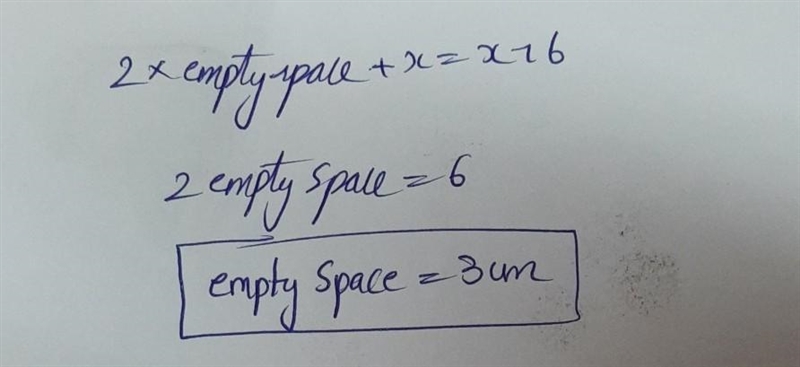 2 × empty space + x = x + 6
2 empty space = 6
empty space = 3 cm